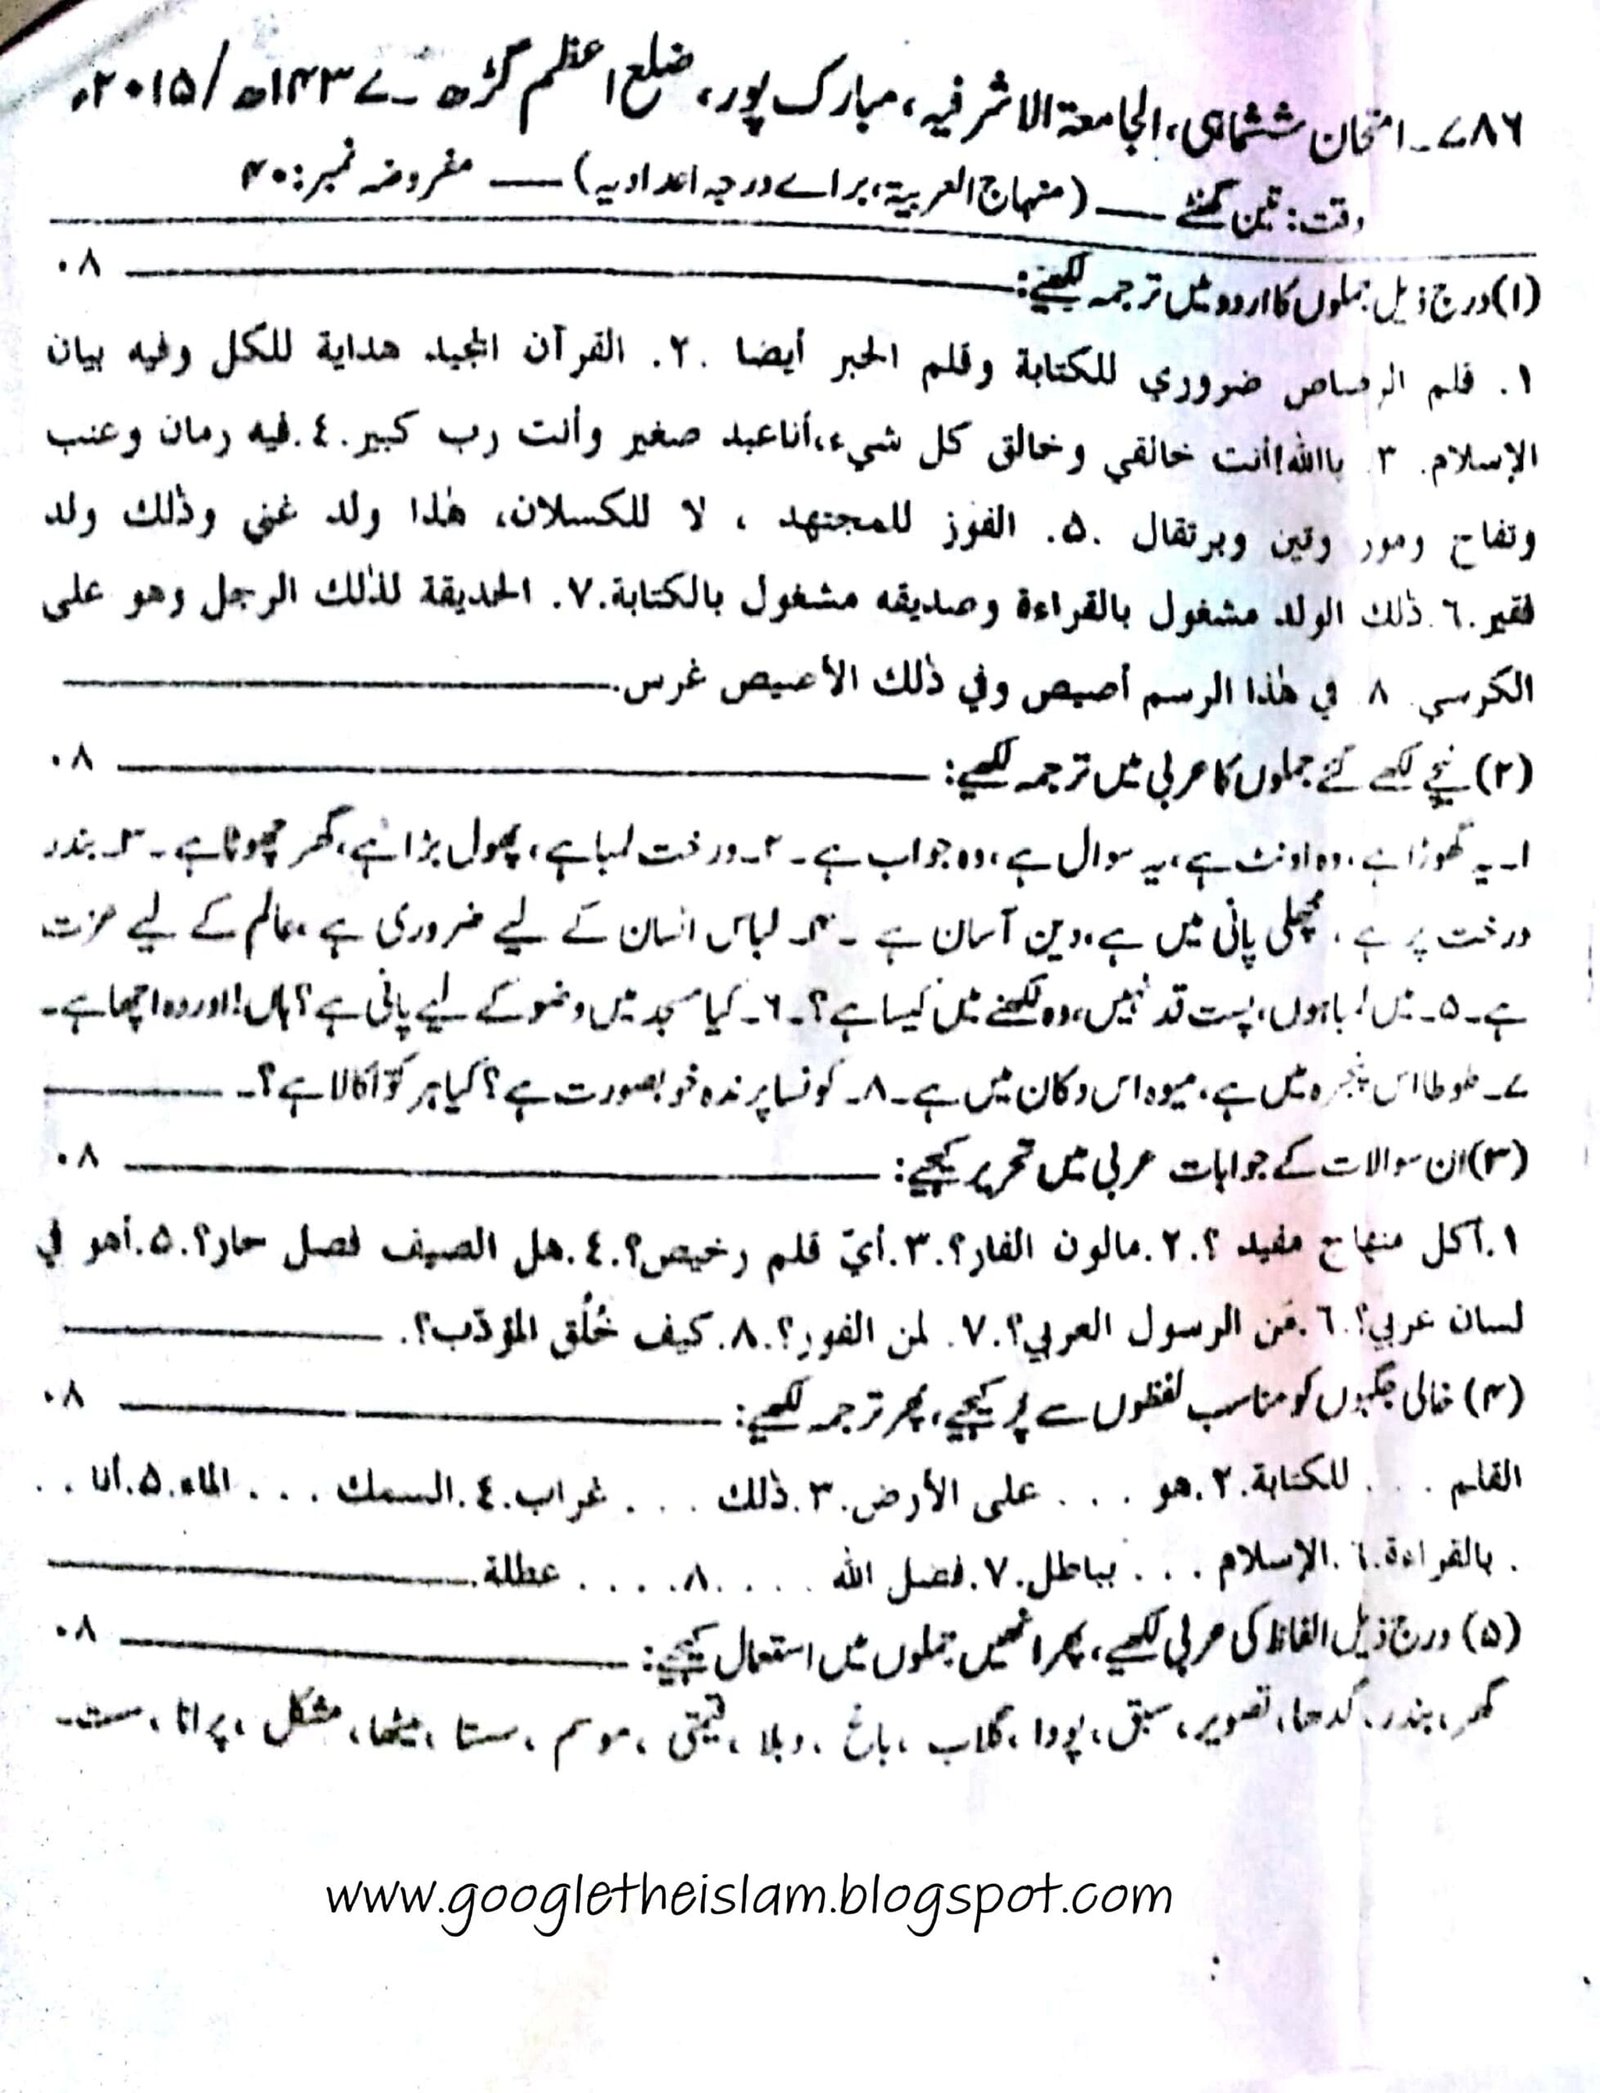 ۷۸۶۔ امتحان ششماہی، الجامعۃ الاشرفیہ، مبارک پور، ضلع اعظم گڑھ ۔ ۱۴۳۷ھ/۲۰۱۵ء
وقت: تین گھنٹے —— (منہاج العربیۃ، برائے درجہ اعدادیہ) —— مفروضہ نمبر: ۴۰
(۱) درج ذیل جملوں کا اردو میں ترجمہ لکھیے: —— ۰۸
۱. قلم الرصاص ضروري للكتابة وقلم الحبر أيضا .۲. القرآن المجيد هداية للكل وفيه بيان
الإسلام. ۳. ياالله!أنت خالقي وخالق كل شيء،أناعبد صغير وأنت رب كبير.٤.فيه رمان وعنب
وتفاح ومور وتين وبرتقال .۵. الفوز للمجتهد ، لا للكسلان، هٰذا ولد غني وذٰلك ولد
فقير.٦.ذٰلك الولد مشغول بالقراءة وصديقه مشغول بالكتابة.۷. الحديقة لذٰلك الرجل وهو على
الكرسي. ۸. في هٰذا الرسم أصيص وفي ذٰلك الأصيص غرس.——
(۲) نیچے لکھے گئے جملوں کا عربی میں ترجمہ لکھیے: —— ۰۸
۱۔ یہ گھوڑا ہے، وہ اونٹ ہے، یہ سوال ہے، وہ جواب ہے ۔ ۲۔ درخت لمبا ہے، پھول بڑا ہے، گھر چھوٹا ہے ۔ ۳۔ بندر
درخت پر ہے، مچھلی پانی میں ہے، دین آسان ہے ۔ ۴۔ لباس انسان کے لیے ضروری ہے، عالم کے لیے عزت
ہے ۔ ۵۔ میں لمبا ہوں، پست قد نہیں، وہ لکھنے میں کیسا ہے؟ ۔ ۶۔ کیا مسجد میں وضو کے لیے پانی ہے؟ ہاں! اور وہ اچھا ہے ۔
۷۔ طوطا اس پنجرہ میں ہے، میوہ اس دکان میں ہے ۔ ۸۔ کونسا پرندہ خوبصورت ہے؟ کیا ہر کوّا کالا ہے؟ ۔ ——
(۳) ان سوالات کے جوابات عربی میں تحریر کیجیے: —— ۰۸
۱.أكل منهاج مفيد ؟.۲.مالون الفار؟.۳.أيّ قلم رخيص؟.٤.هل الصيف فصل حار؟.۵.أهو في
لسان عربي؟.٦.مَن الرسول العربي؟.۷. لمن الفوز؟.۸.كيف خُلُق المؤدّب؟. ——
(۴) خالی جگہوں کو مناسب لفظوں سے پُر کیجیے، پھر ترجمہ لکھیے: —— ۰۸
القلم . . . للكتابة.۲.هو . . . على الأرض.۳.ذٰلك . . . غراب.٤.السمك . . . الماء.۵.أنا . .
. بالقراءة.٦.الإسلام . . . بباطل.۷.فضل الله . . . .۸. . . . عطلة.——
(۵) درج ذیل الفاظ کی عربی لکھیے، پھر انھیں جملوں میں استعمال کیجیے: —— ۰۸
گھر، بندر، گدھا، تصویر، سبق، پودا، گلاب، باغ، دبلا، قیمتی، موسم، سستا، میٹھا، مشکل، پرانا، سست۔
www.googletheislam.blogspot.com